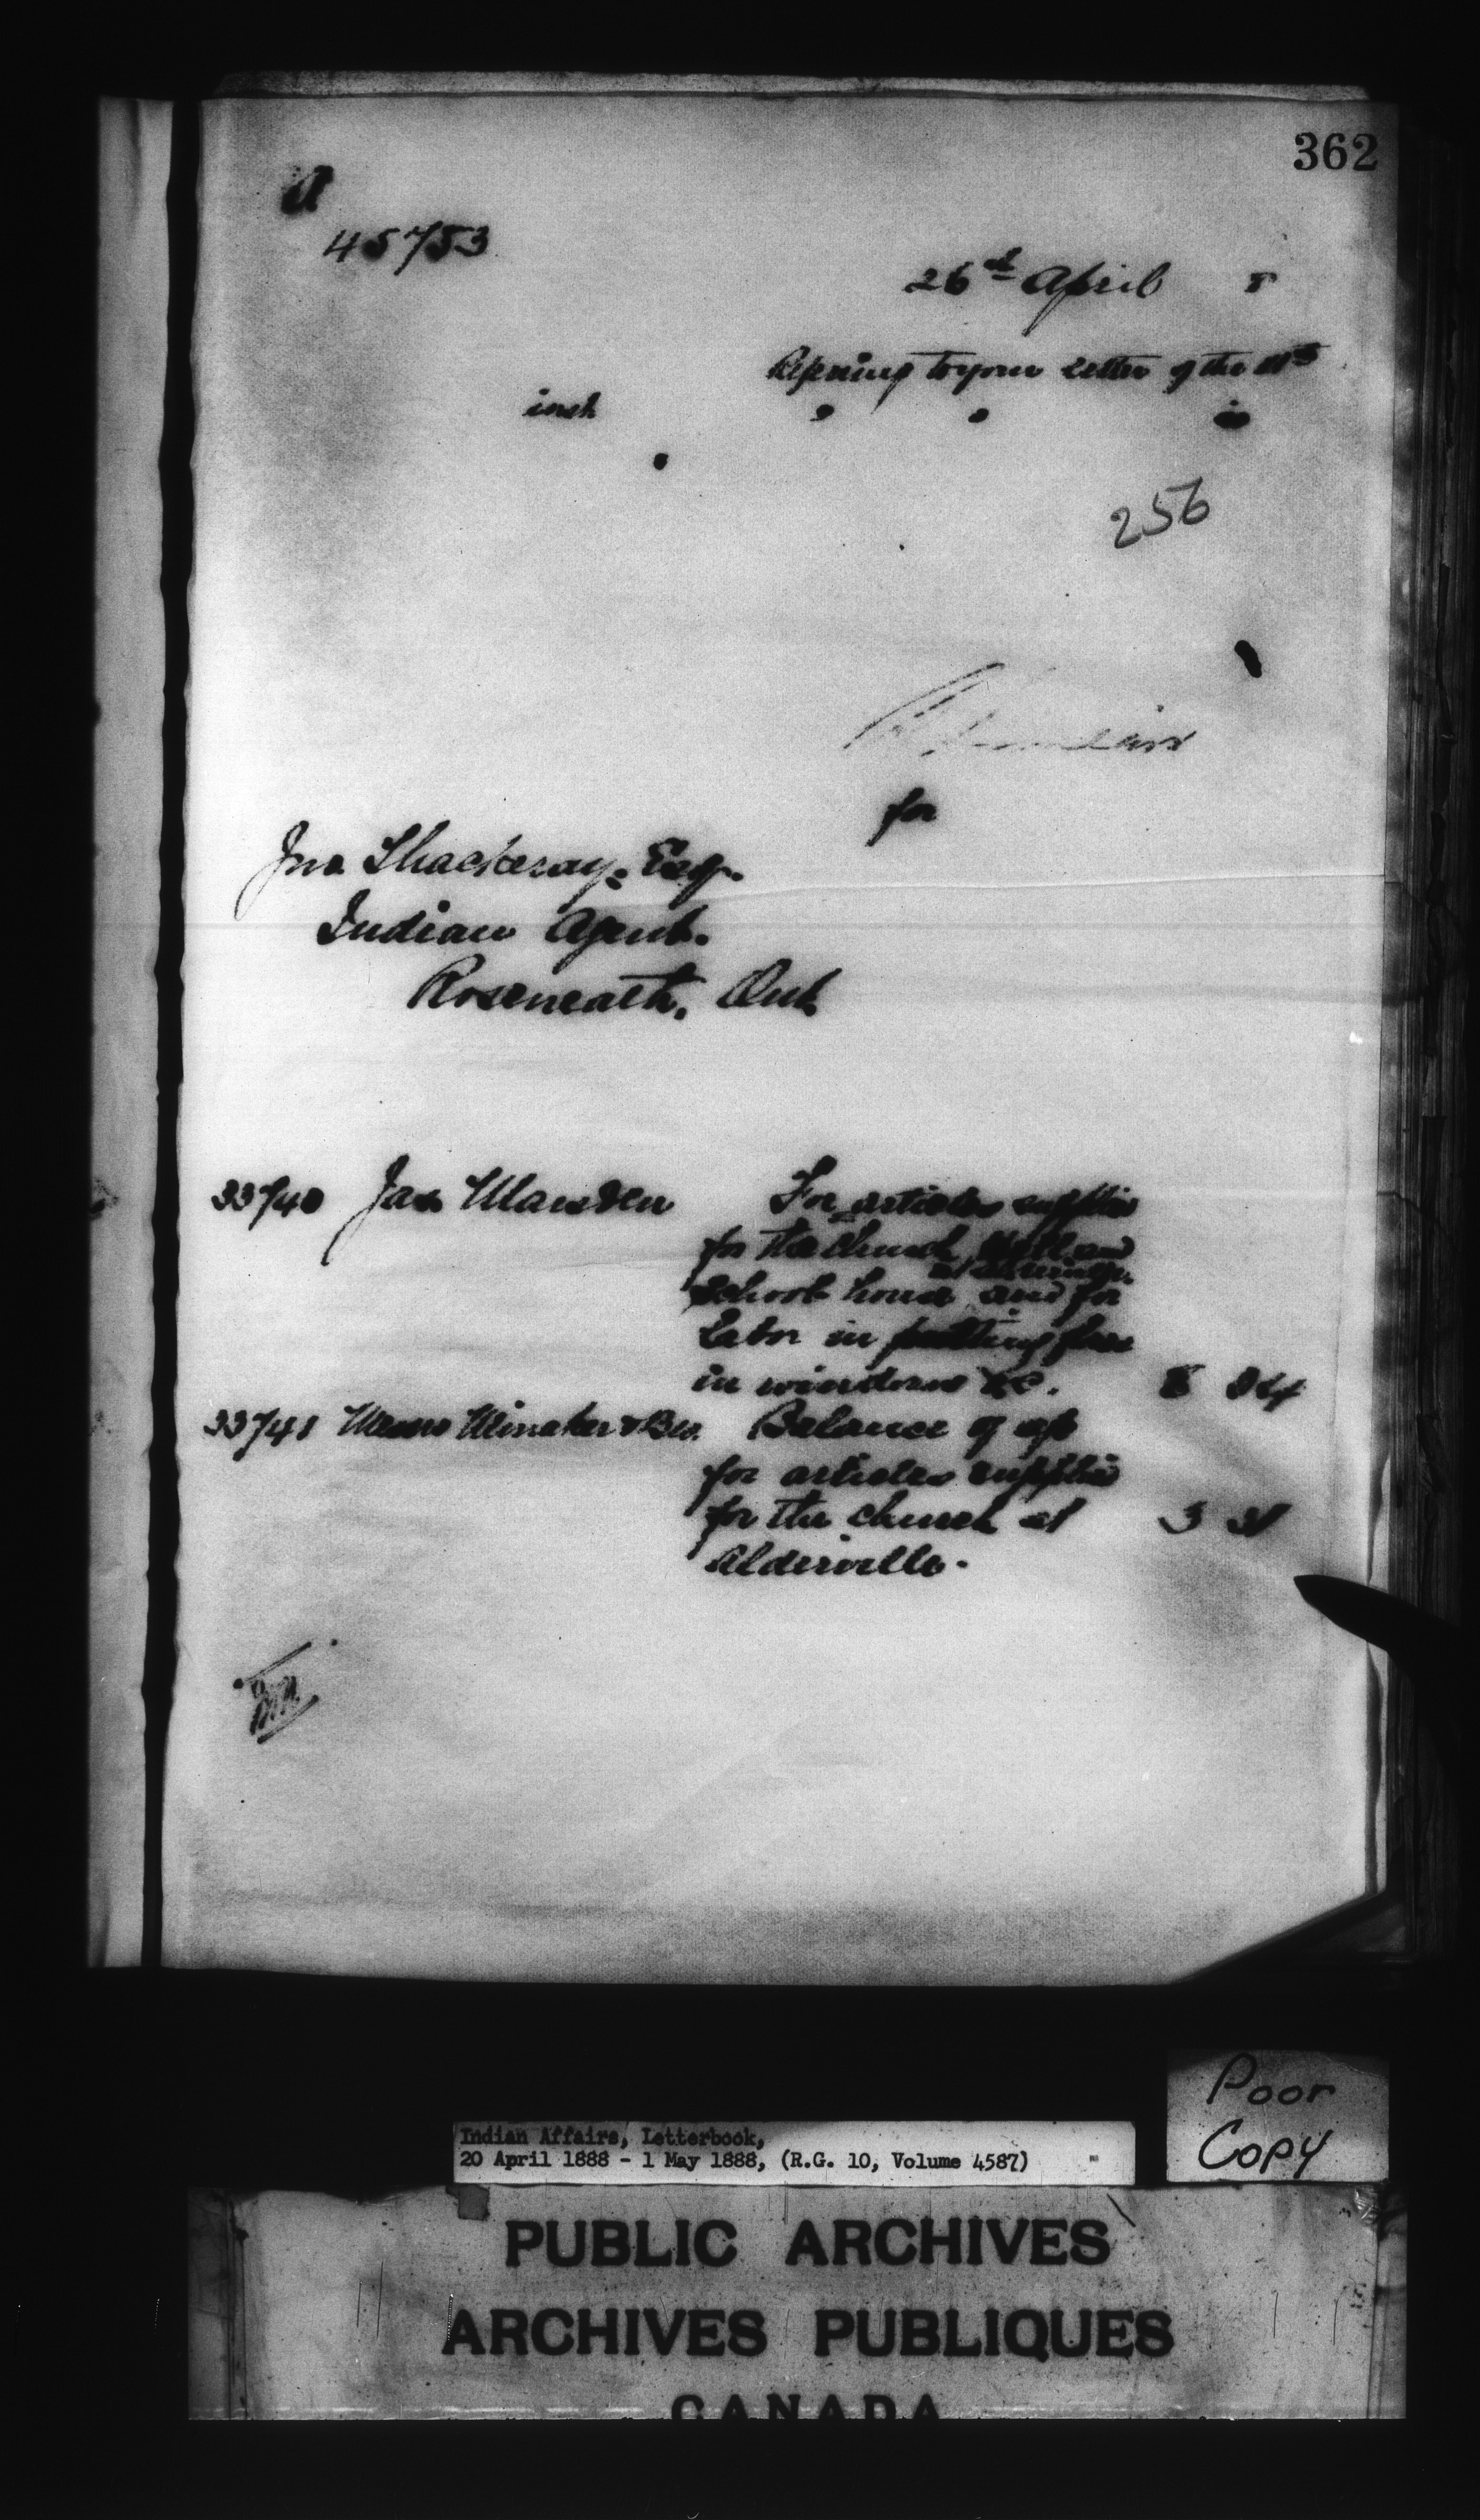 362
A
45753
26th April 8
Refering to your letter of the
inst
256
for
Jno Thackeray, Esq.
Indian Agent.
Roseneath, Ont.
33740 Jas Marsden For articles supplied
for the church, Hall and
at Alderville
School house and for
Labor in putting
in windows &c. 8 84
33741 Messrs Minaker & Bro. Balance of a/c
for articles supplied
for the church at 3 31
Alderville.
Poor
Copy
Indian Affairs, Letterbook,
20 April 1888 - 1 May 1888, (R.G. 10, Volume 4587)
PUBLIC ARCHIVES
ARCHIVES PUBLIQUES
CANADA